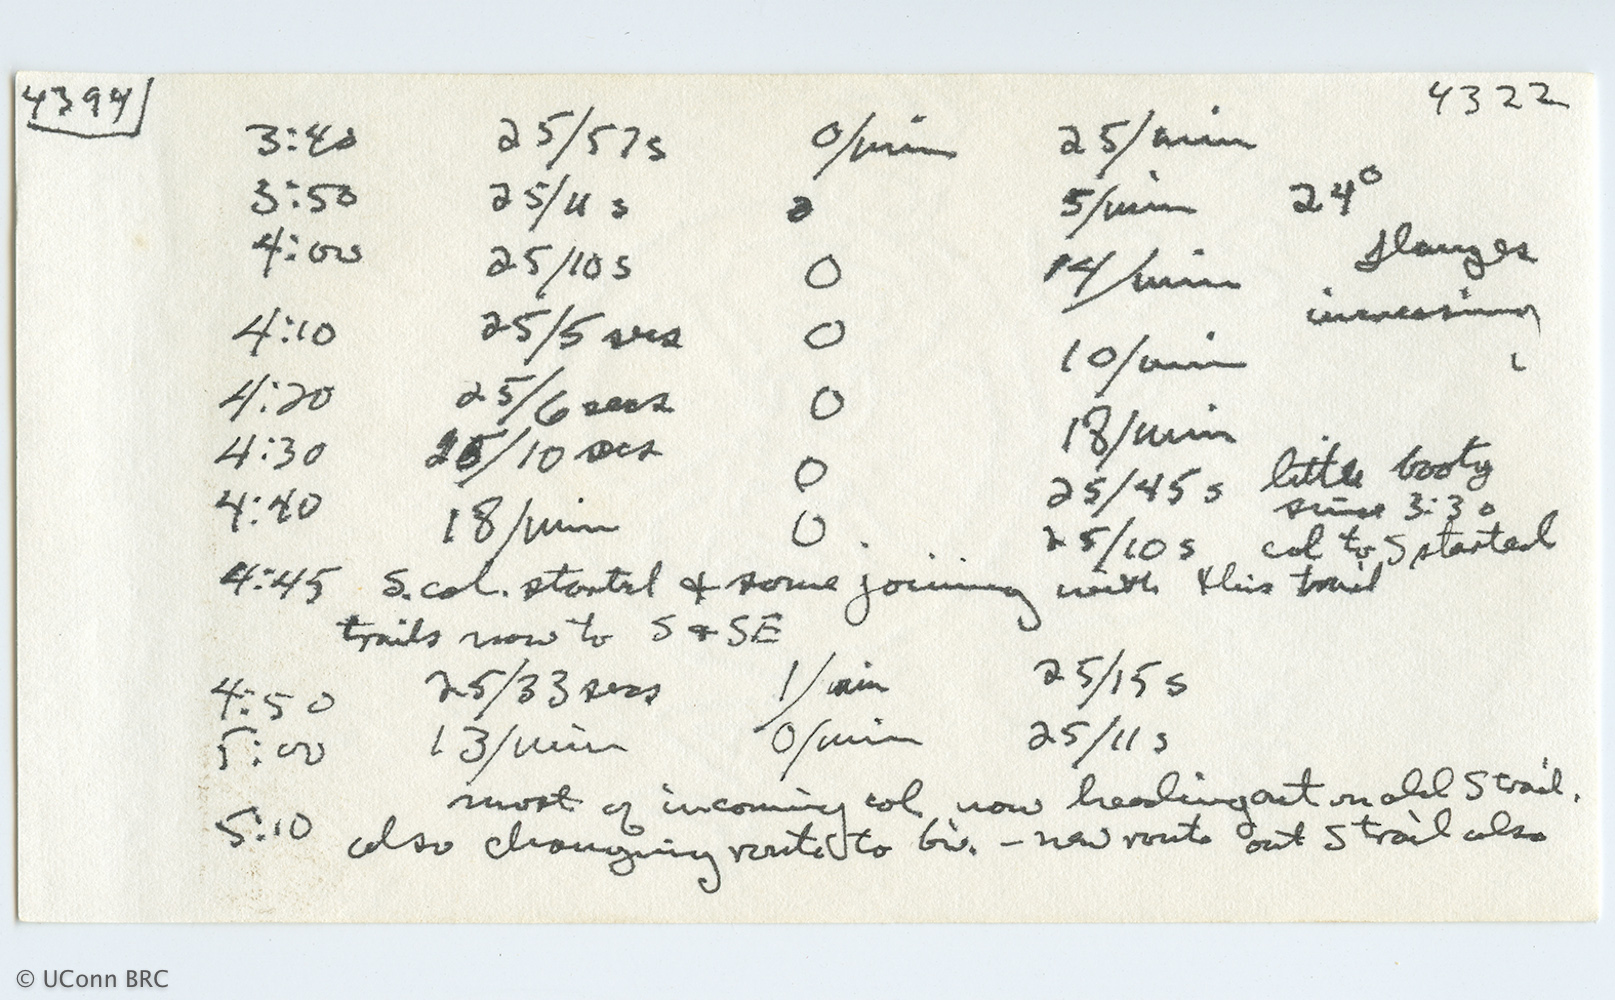 4394 4322
3:40 25/57s 0/min 25/min
3:50 25/11s 2 5/min 24°
4:00 25/10s 0 14/min flanges
4:10 25/5 secs 0 10/min increasing
4:20 25/6 secs 0 18/min
4:30 25/10 secs 0 25/45s little booty
since 3:30
4:40 18/min 0 25/10s col to S started
4:45 S. col. started & some joining with this trail
trails now to S & SE
4:50 25/33 secs 1/min 25/15s
5:00 13/min 0/min 25/11s
most of incoming col now heading out on old S trail.
5:10 also changing route to biv. - new route out S trail also
© UConn BRC